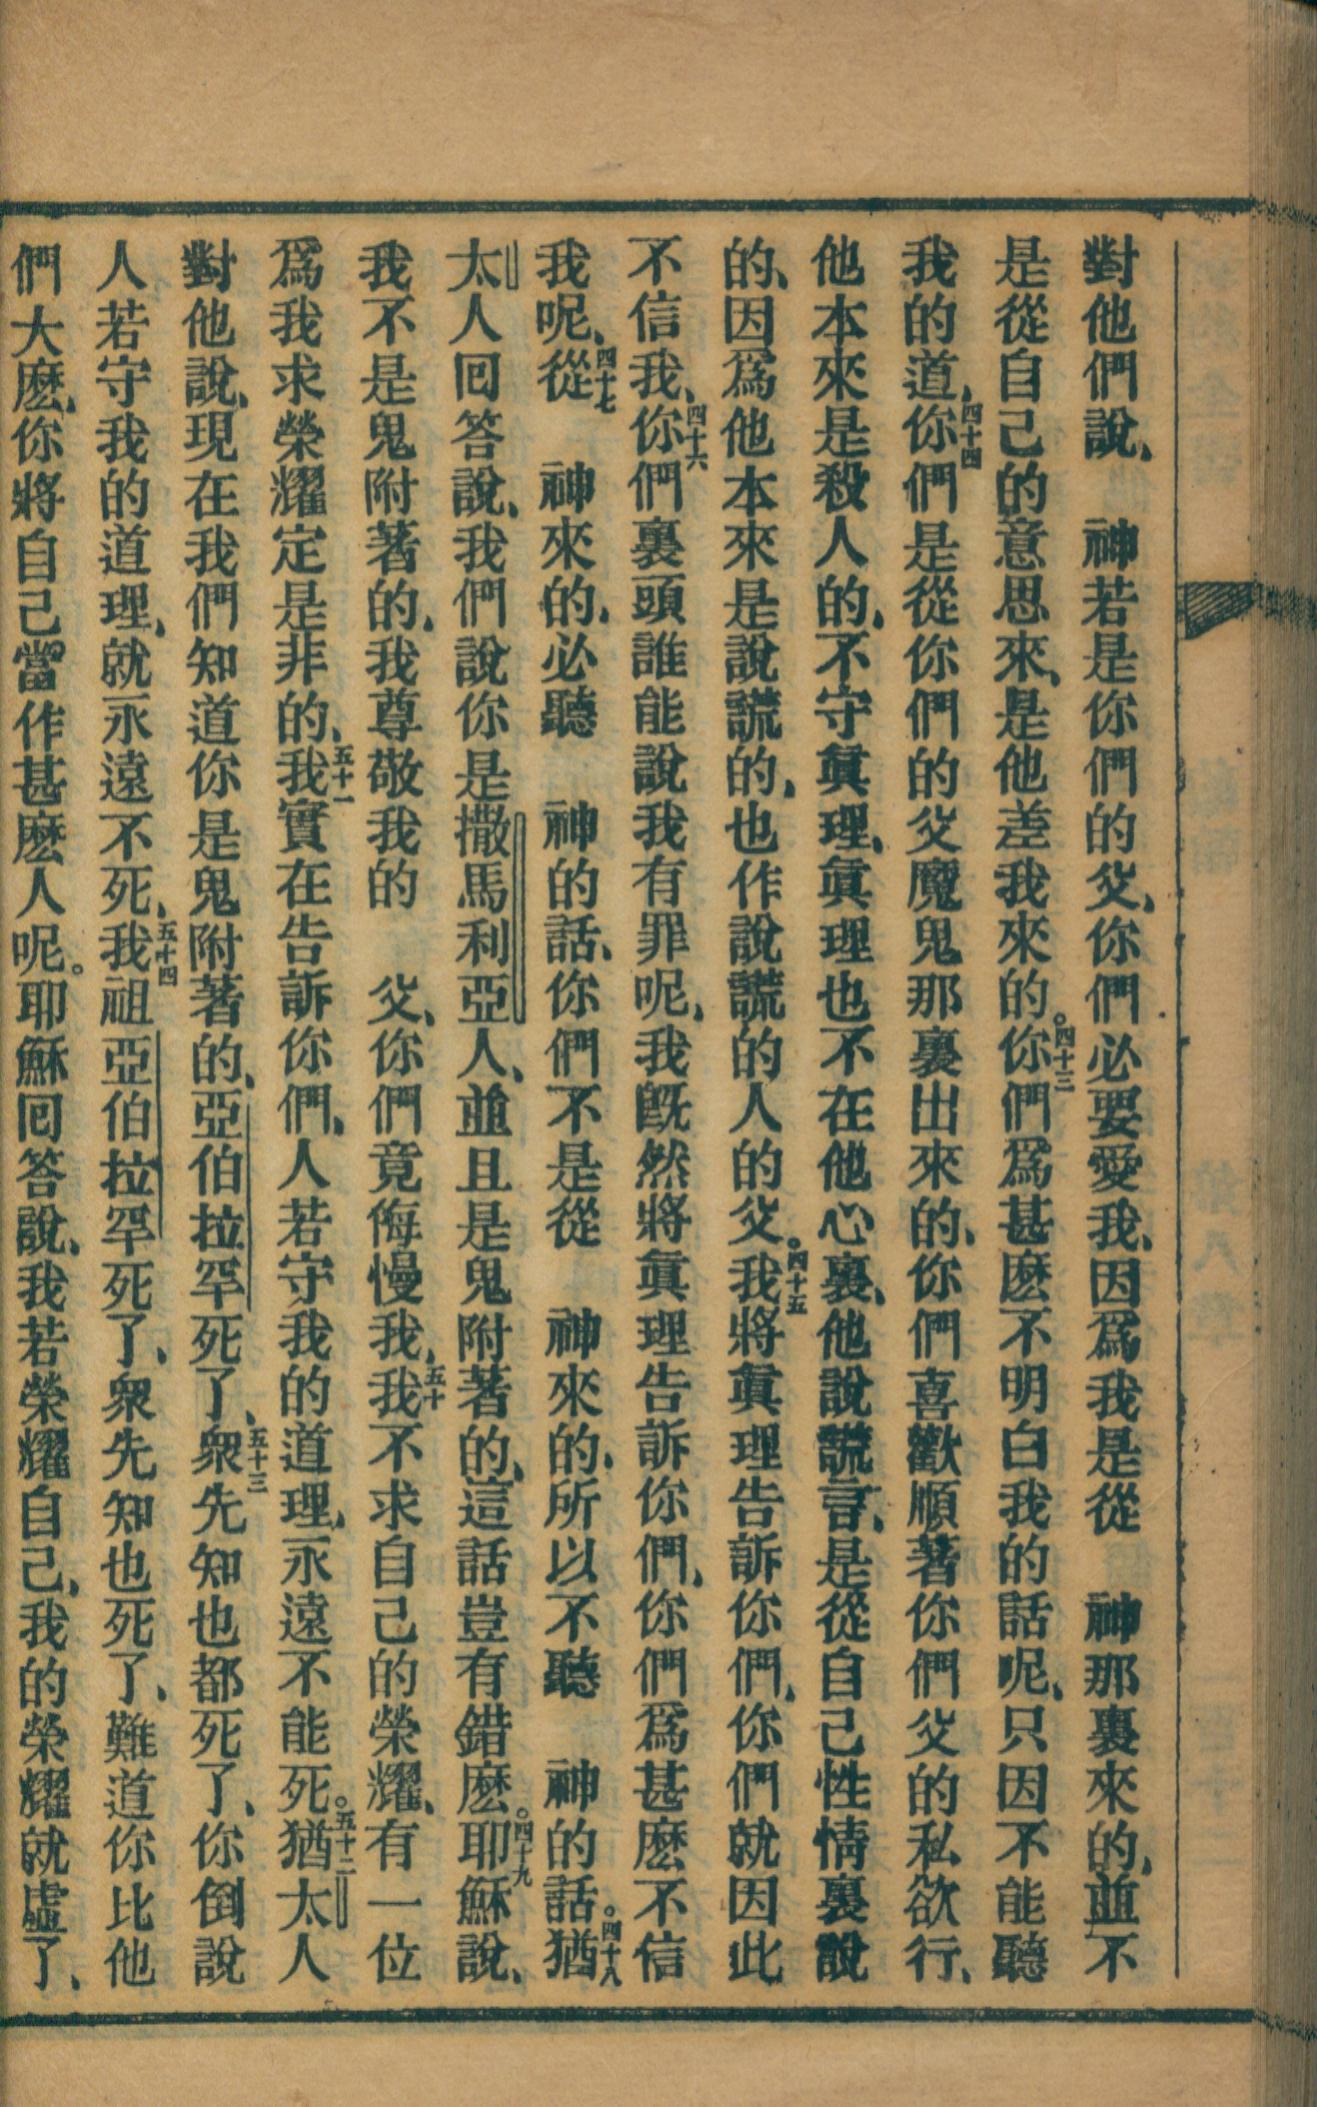 對他們說、　神若是你們的父、你們必要愛我、因爲我是從　神那裏來的、並不
是從自己的意思來、是他差我來的。四十三你們爲甚麽不明白我的話呢、只因不能聽
我的道、四十四你們是從你們的父魔鬼那裏出來的、你們喜歡順著你們父的私欲行、
他本來是殺人的、不守眞理、眞理也不在他心裏、他說謊言、是從自己性情裏說
的、因爲他本來是說謊的、也作說謊的人的父。四十五我將眞理告訴你們、你們就因此
不信我、四十六你們裏頭誰能說我有罪呢、我旣然將眞理告訴你們、你們爲甚麽不信
我呢、四十七從　神來的、必聽　神的話、你們不是從　神來的、所以不聽　神的話。四十八猶
太人回答說、我們說你是撒馬利亞人、並且是鬼附著的、這話豈有錯麽。四十九耶穌說、
我不是鬼附著的、我尊敬我的　父、你們竟侮慢我、五十我不求自己的榮耀、有一位
爲我求榮耀定是非的、五十一我實在告訴你們、人若守我的道理、永遠不能死。五十二猶太人
對他說、現在我們知道你是鬼附著的、亞伯拉罕死了、五十三衆先知也都死了、你倒說
人若守我的道理、就永遠不死、五十四我祖亞伯拉罕死了、衆先知也死了、難道你比他
們大麽、你將自己當作甚麽人呢。耶穌回答說、我若榮耀自己、我的榮耀就虛了、